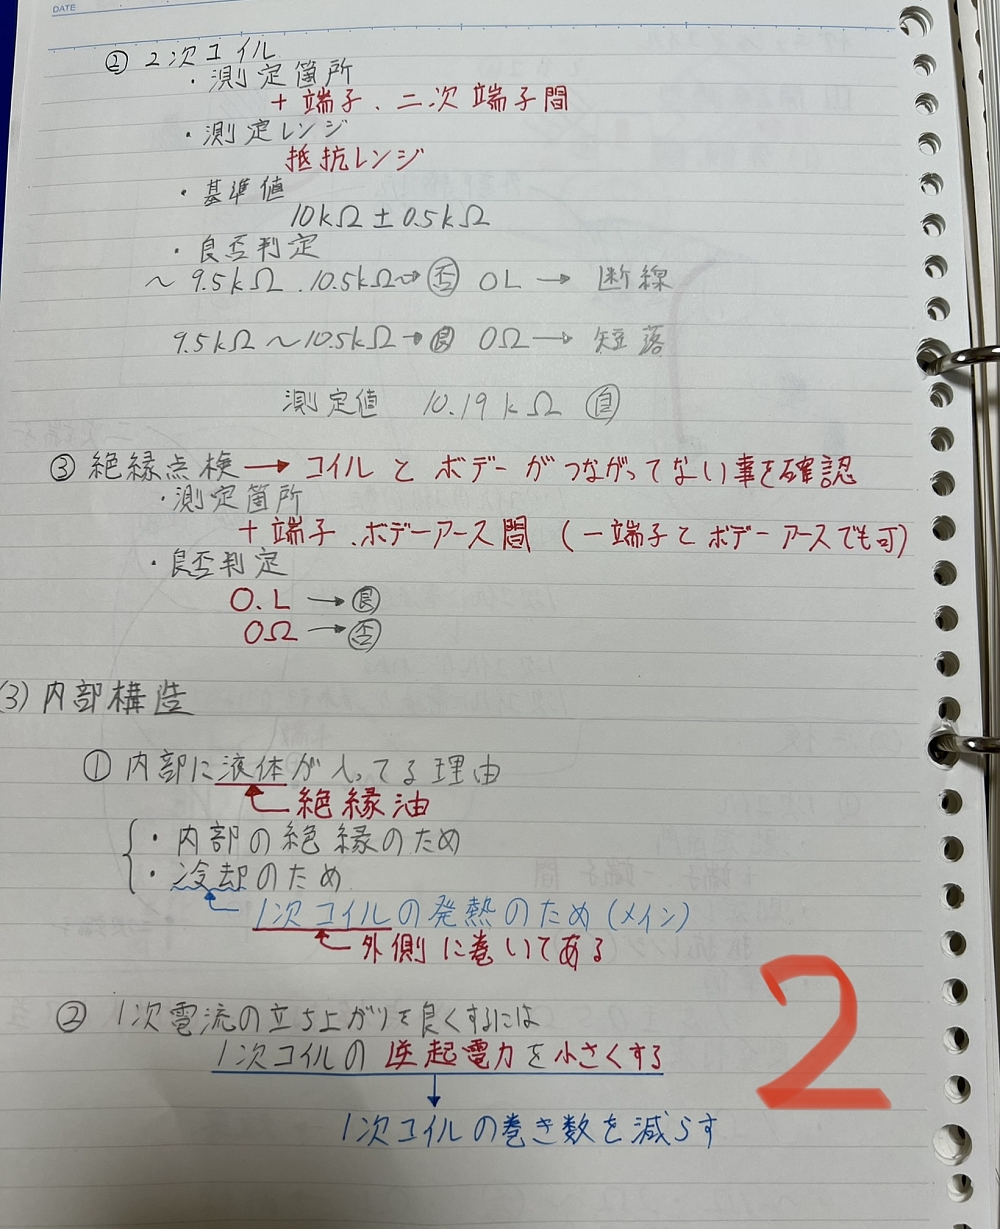 DATE
② 2次コイル
・測定箇所
+端子、二次端子間
・測定レンジ
抵抗レンジ
・基準値
10kΩ±0.5kΩ
・良否判定
～9.5kΩ、10.5kΩ～→否 OL→断線
9.5kΩ～10.5kΩ→良 0Ω→短落
測定値 10.19kΩ 良
③ 絶縁点検→コイルとボデーがつながってない事を確認
・測定箇所
+端子、ボデーアース間(一端子とボデーアースでも可)
・良否判定
O.L→良
0Ω→否
(3)内部構造
① 内部に液体が入ってる理由
絶縁油
・内部の絶縁のため
・冷却のため
1次コイルの発熱のため(メイン)
外側に巻いてある
② 1次電流の立ち上がりを良くするには
1次コイルの逆起電力を小さくする
1次コイルの巻き数を減らす
2